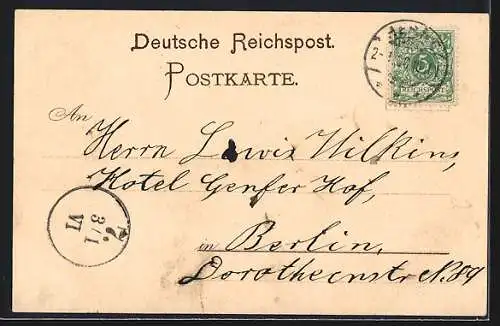 Deutsche Reichspost.
POSTKARTE.
5
REICHSPOST
An
Herrn Lewis Wilkins,
Hotel Genfer Hof,
in Berlin,
Dorotheenstr N. 89
3/1
VI